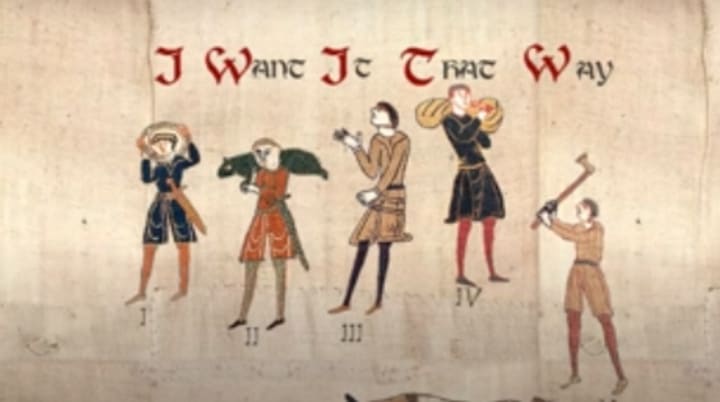 I Want It That Way
I
II
III
IV